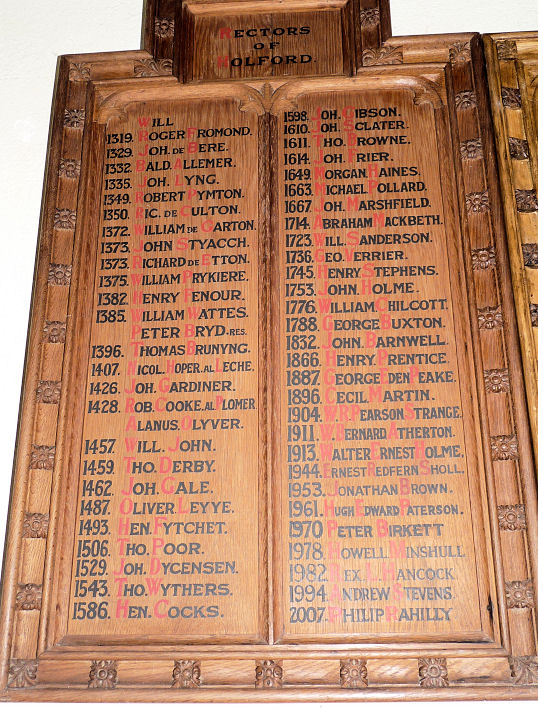 RECTORS
OF
WOLFORD.
WILL
1319. ROGER FROMOND.
1329. JOH. DE BERE.
1332. BALD. ALLEMER.
1335. JOH. LYNG.
1349. ROBERT PYMTON.
1350. RIC. DE CULTON.
1372. WILLIAM DE GARTON.
1373. JOHN STYACCH.
1373. RICHARD DE ETTON.
1375. WILLIAM PRYKIERE.
1382. HENRY FENOUR.
1385. WILLIAM WATTES.
PETER BRYD. RES.
1396. THOMAS BRUNYNG.
1407. NICOL. HOPER. AL LECHE.
1426. JOH. GARDINER.
1428. ROB. COOKE. AL PLOMER
ALANUS. OLYVER.
1457. WILL. JOHN.
1459. THO. DERBY.
1462. JOH. GALE.
1487. OLIVER LEYYE.
1493. HEN. FYTCHET.
1506. THO. POOR.
1529. JOH. DYCENSEN.
1543. THO. WYTHERS.
1586. HEN. COCKS.
1598. JOH. GIBSON.
1610. JOH. SCLATER.
1611. THO. BROWNE.
1614. JOH. FRIER.
1649. MORGAN. HAINES.
1663. MICHAEL POLLARD.
1667. JOH. MARSHFIELD.
1714. ABRAHAM MACKBETH.
1723. WILL. SANDERSON.
1736. GEO. VERRIER.
1745. HENRY STEPHENS.
1753. JOHN. HOLME.
1776. WILLIAM. CHILCOTT.
1788. GEORGE BUXTON.
1832. JOHN. BARNWELL.
1866. HENRY. PRENTICE.
1887. GEORGE EDEN PEAKE.
1896. CECIL MARTIN.
1904. W.R. PEARSON STRANGE.
1911. W. BERNARD ATHERTON.
1913. WALTER ERNEST HOLME.
1944. ERNEST REDFERN SHOLL.
1953. JONATHAN BROWN.
1961. HUGH EDWARD PATERSON.
1970 PETER BIRKETT
1978. HOWELL MINSHULL
1982. REX. L. HANCOCK.
1994. ANDREW STEVENS.
2007. PHILIP RAHILLY